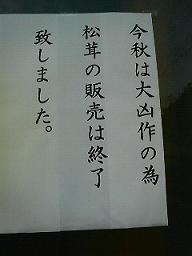 今秋は大凶作の為
松茸の販売は終了
致しました。